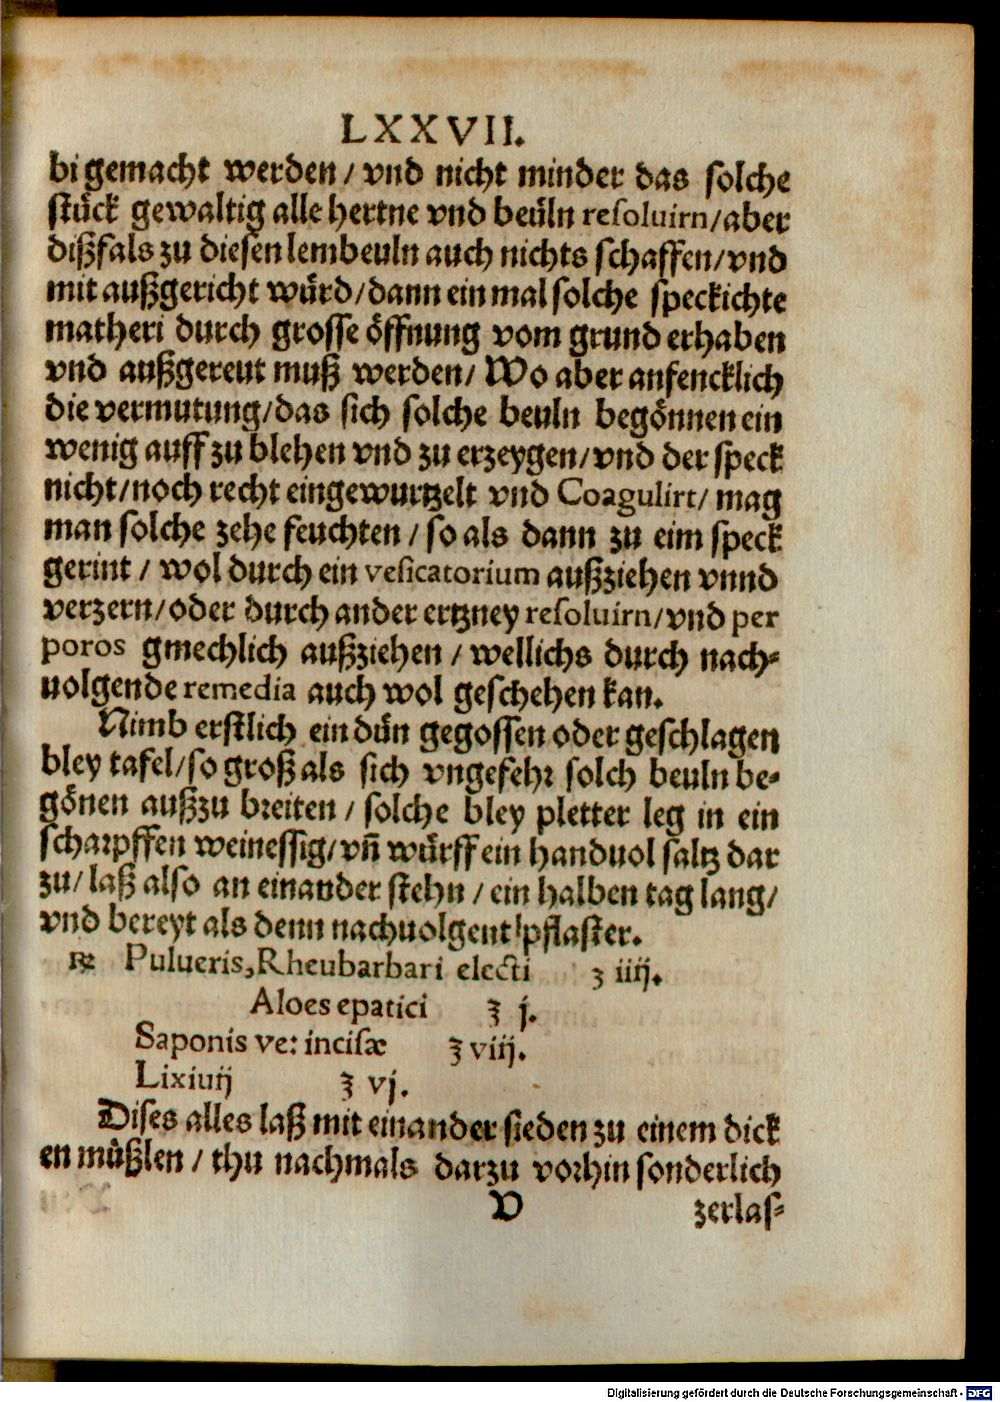 LXXVII.
bi gemacht werden / vnd nicht minder das solche
stůck gewaltig alle hertne vnd beüln resoluirn/aber
dißfals zu diesen lembeuln auch nichts schaffen/vnd
mit außgericht würd/dann ein mal solche speckichte
matheri durch grosse öffnung vom grund erhaben
vnd außgereut muß werden/ Wo aber anfencklich
die vermutung/das sich solche beuln begönnen ein
wenig auff zu blehen vnd zu erzeygen/vnd der speck
nicht/noch recht eingewurtzelt vnd Coagulirt/ mag
man solche zehe feuchten / so als dann zu eim speck
gerint / wol durch ein vesicatorium außziehen vnnd
verzern/oder durch ander ertzney resoluirn/vnd per
poros gmechlich außziehen / wellichs durch nach-
uolgende remedia auch wol geschehen kan.
Nimb erstlich ein dün gegossen oder geschlagen
bley tafel/so groß als sich vngefehr solch beuln be-
gönen außzu breiten / solche bley pletter leg in ein
scharpffen weinessig/vñ würff ein handuol saltz dar
zu/ laß also an einander stehn / ein halben tag lang/
vnd bereyt als denn nachuolgent pflaster.
℞ Pulueris, Rheubarbari electi ʒ iiij.
Aloes epatici ℥ j.
Saponis ve: incisæ ℥ viij.
Lixiuij ℥ vj.
Dises alles laß mit einander sieden zu einem dick
en müßlen / thu nachmals darzu vorhin sonderlich
V zerlas-
Digitalisierung gefördert durch die Deutsche Forschungsgemeinschaft - DFG